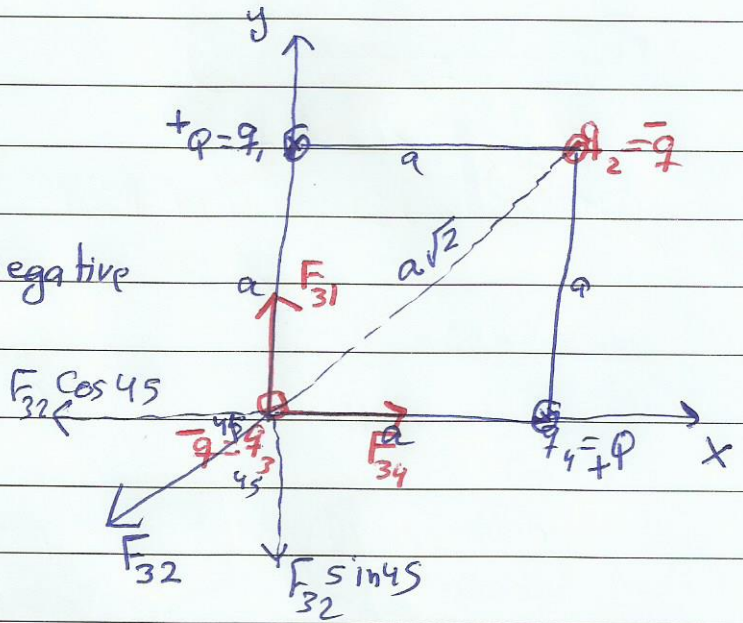 y
+Q = q₁
a
q₂ = -q
a√2
egative
a
F₃₁
a
F₃₂ Cos 45
45
-q = q₃
45
a
F₃₄
q₄ = +Q
X
F₃₂
F₃₂ sin 45